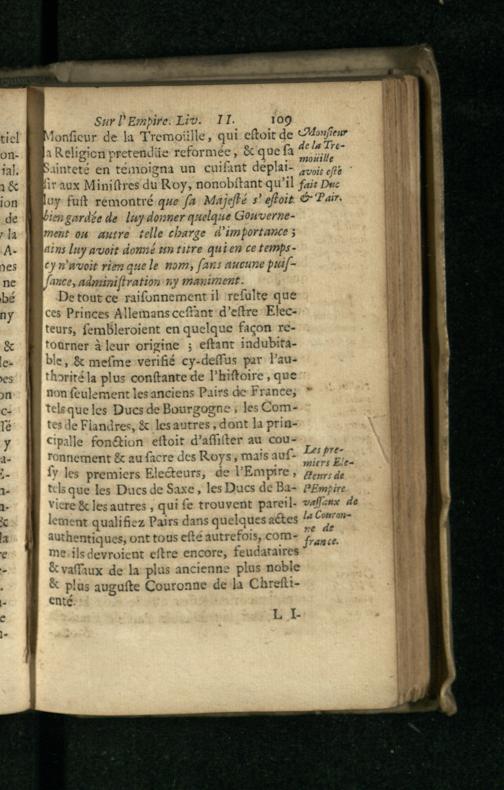 Sur l'Empire. Liv. II. 109
Monsieur de la Tremoüille, qui estoit de
la Religion pretendüe reformée, & que sa
Sainteté en témoigna un cuisant déplai-
sir aux Ministres du Roy, nonobstant qu'il
luy fust remontré que sa Majesté s'estoit
bien gardée de luy donner quelque Gouverne-
ment ou autre telle charge d'importance ;
ains luy avoit donné un titre qui en ce temps-
cy n'avoit rien que le nom, sans aucune puis-
sance, administration ny maniment.
Monsieur
de la Tre-
moüille
avoit esté
fait Duc
& Pair.
De tout ce raisonnement il resulte que
ces Princes Allemans cessant d'estre Elec-
teurs, sembleroient en quelque façon re-
tourner à leur origine ; estant indubita-
ble, & mesme verifié cy-dessus par l'au-
thorité la plus constante de l'histoire, que
non seulement les anciens Pairs de France,
tels que les Ducs de Bourgogne, les Com-
tes de Flandres, & les autres, dont la prin-
cipalle fonction estoit d'assister au cou-
ronnement & au sacre des Roys, mais aus-
sy les premiers Electeurs, de l'Empire,
tels que les Ducs de Saxe, les Ducs de Ba-
viere & les autres, qui se trouvent pareil-
lement qualifiez Pairs dans quelques actes
authentiques, ont tous esté autrefois, com-
me ils devroient estre encore, feudataires
& vassaux de la plus ancienne plus noble
& plus auguste Couronne de la Chresti-
enté.
Les pre-
miers Ele-
cteurs de
l'Empire
vassaux de
la Couron-
ne de
france.
L I-